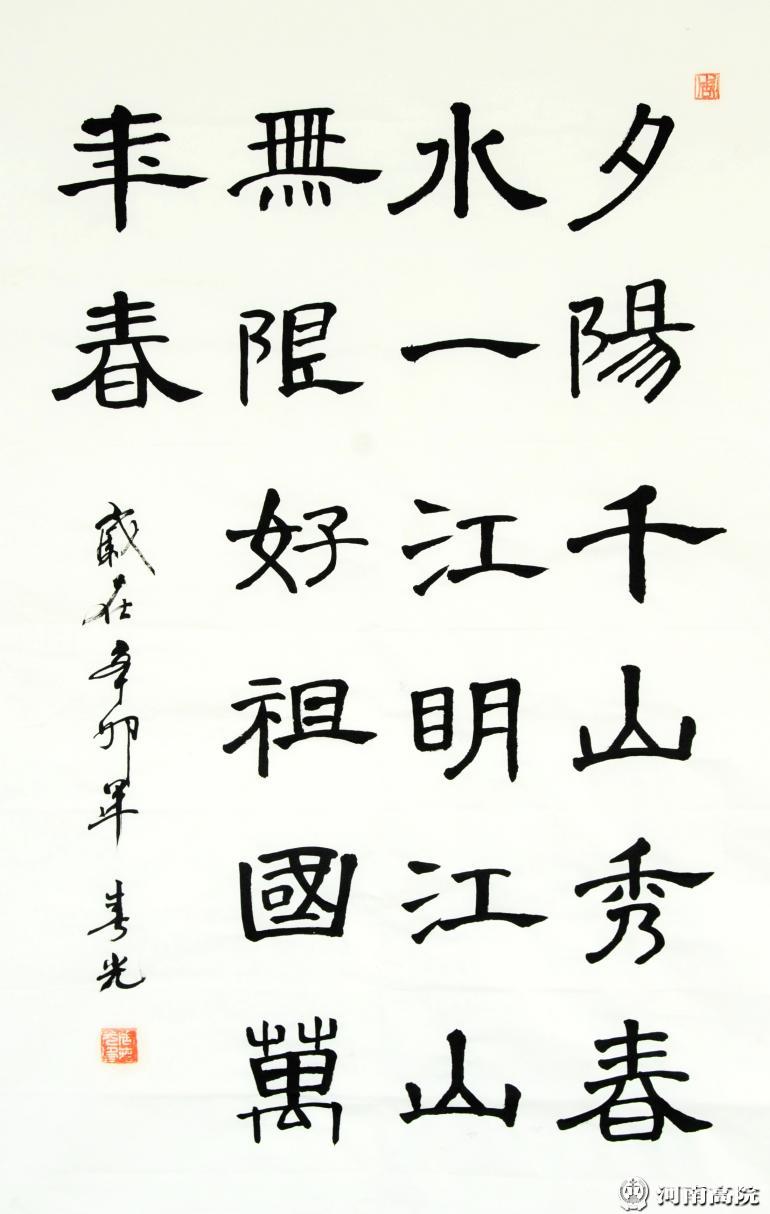 夕陽千山秀春
水一江明江山
無限好祖國萬
年春
歲在辛卯 春光
河南高院